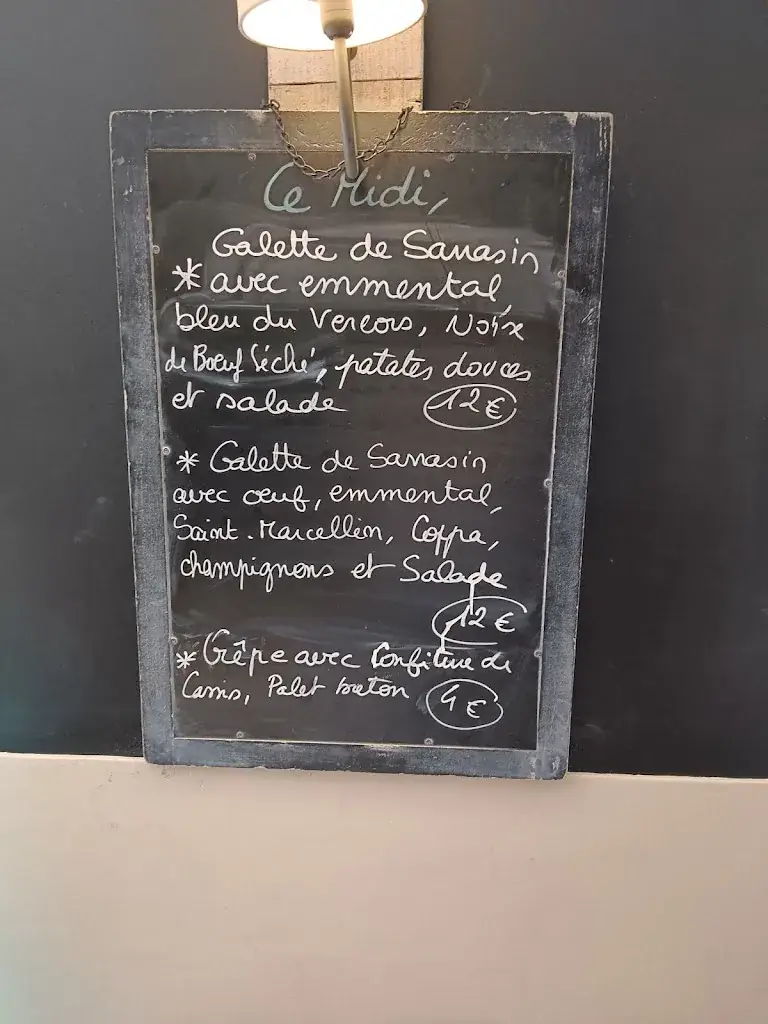 Ce Midi,
Galette de Sarrasin
* avec emmental,
bleu du Vercors, Noix
de Boeuf Séché, patates douces
et salade 12 €
* Galette de Sarrasin
avec oeuf, emmental,
Saint-Marcellin, Coppa,
champignons et Salade
12 €
* Crêpe avec Confiture de
Cassis, Palet breton 4 €